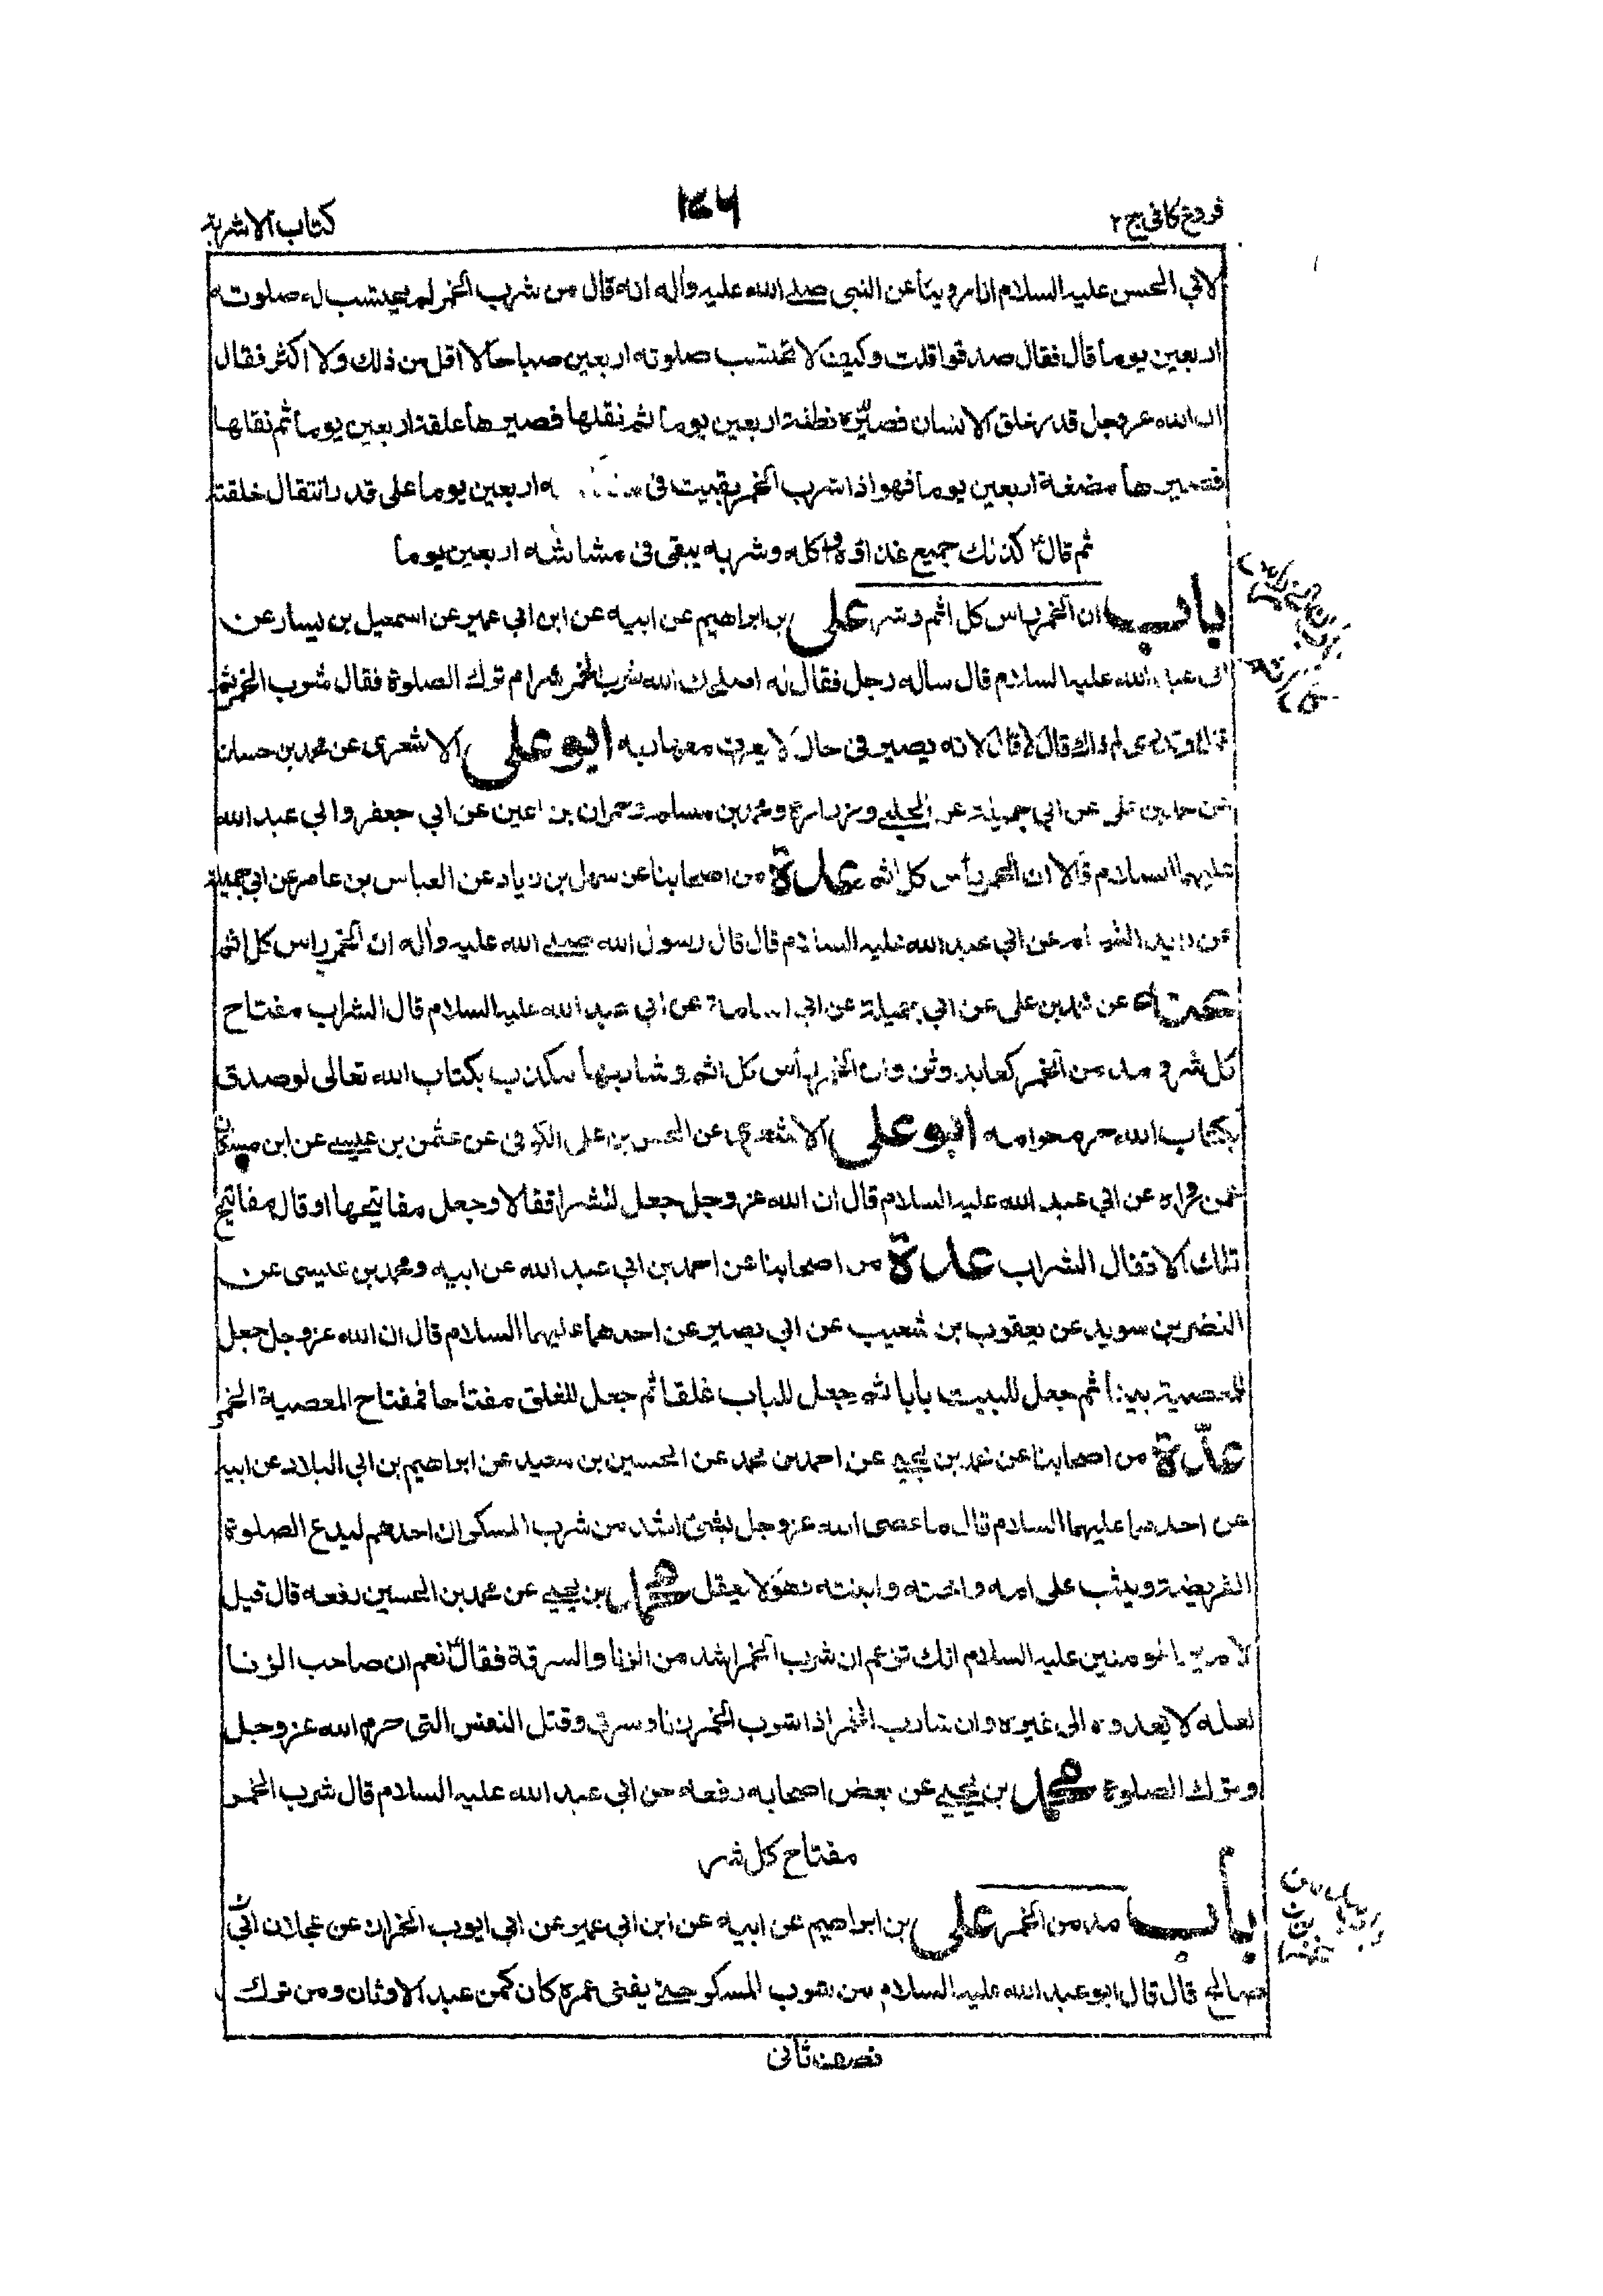 فروع كافى ج ٢
١٤٦
كتاب الاشربة
لابي الحسن عليه السلام انا روينا عن النبي صلى الله عليه وآله انه قال من شرب الخمر لم يحتسب له صلوته
اربعين يوما قال فقال صدقوا قلت وكيف لا تحتسب صلوته اربعين صباحا لا اقل من ذلك ولا اكثر فقال
ان الله عز وجل قدر خلق الانسان فصيّره نطفة اربعين يوما ثم نقلها فصيرها علقة اربعين يوما ثم نقلها
فصيرها مضغة اربعين يوما فهو اذا شرب الخمر بقيت فى ه اربعين يوما على قدر انتقال خلقته
ثم قال كذلك جميع غذائه واكله وشربه يبقى فى مشاشه اربعين يوما
باب ان الخمر راس كل اثم وشر على بن ابراهيم عن ابيه عن ابن ابي عمير عن اسمعيل بن يسار عن
ابى عبد الله عليه السلام قال ساله رجل فقال له اصلحك الله شرب الخمر شر ام ترك الصلوة فقال شرب الخمر ثم
قال وتدرى لم ذاك قال لا قال لانه يصير فى حال لا يعرف معها ربه ابو على الاشعرى عن محمد بن حسان
عن محمد بن على عن ابي جميلة عن الحلبي وزرارة ومحمد بن مسلم وحمران بن اعين عن ابي جعفر وابي عبد الله
عليهما السلام قالا ان الخمر رأس كل اثم عدة من اصحابنا عن سهل بن زياد عن العباس بن عامر عن ابي جميلة
عن زيد الشحام عن ابي عبد الله عليه السلام قال قال رسول الله صلى الله عليه وآله ان الخمر راس كل اثم
عنه عن محمد بن على عن ابي جميلة عن ابي اسامة عن ابي عبد الله عليه السلام قال الشراب مفتاح
كل شر و مدمن الخمر كعابد وثن وان الخمر رأس كل اثم وشاربها مكذب بكتاب الله تعالى لو صدق
بكتاب الله حرم حرامه ابو على الاشعرى عن الحسن بن على الكوفى عن عثمن بن عيسى عن ابن مسكان
عمن رواه عن ابي عبد الله عليه السلام قال ان الله عز وجل جعل للشر اقفالا وجعل مفاتيحها او قال مفاتيح
تلك الاقفال الشراب عدة من اصحابنا عن احمد بن ابي عبد الله عن ابيه ومحمد بن عيسى عن
النضر بن سويد عن يعقوب بن شعيب عن ابي بصير عن احدهما عليهما السلام قال ان الله عز وجل جعل
للمعصية بيتا ثم جعل للبيت بابا ثم جعل للباب غلقا ثم جعل للغلق مفتاحا فمفتاح المعصية الخمر
عدّة من اصحابنا عن محمد بن يحيى عن احمد بن محمد عن الحسين بن سعيد عن ابراهيم بن ابي البلاد عن ابيه
عن احدهما عليهما السلام قال ما عصى الله عز وجل بشئ اشد من شرب المسكر ان احدهم ليدع الصلوة
الفريضة ويثب على امه واخته وابنته وهو لا يعقل محمد بن يحيى عن محمد بن الحسين رفعه قال قيل
لامير المومنين عليه السلام انك تزعم ان شرب الخمر اشد من الزنا والسرقة فقال نعم ان صاحب الزنا
لعله لا يعدوه الى غيره وان شارب الخمر اذا شرب الخمر زنا وسرق وقتل النفس التى حرم الله عز وجل
وترك الصلوة محمد بن يحيى عن بعض اصحابه رفعه عن ابي عبد الله عليه السلام قال شرب الخمر
مفتاح كل شر
باب مدمن الخمر على بن ابراهيم عن ابيه عن ابن ابي عمير عن ابي ايوب الخزاز عن عجلان ابى
صالح قال قال ابو عبد الله عليه السلام من شرب المسكر حتى يفنى عمره كان كمن عبد الاوثان ومن ترك
نصف ثانى